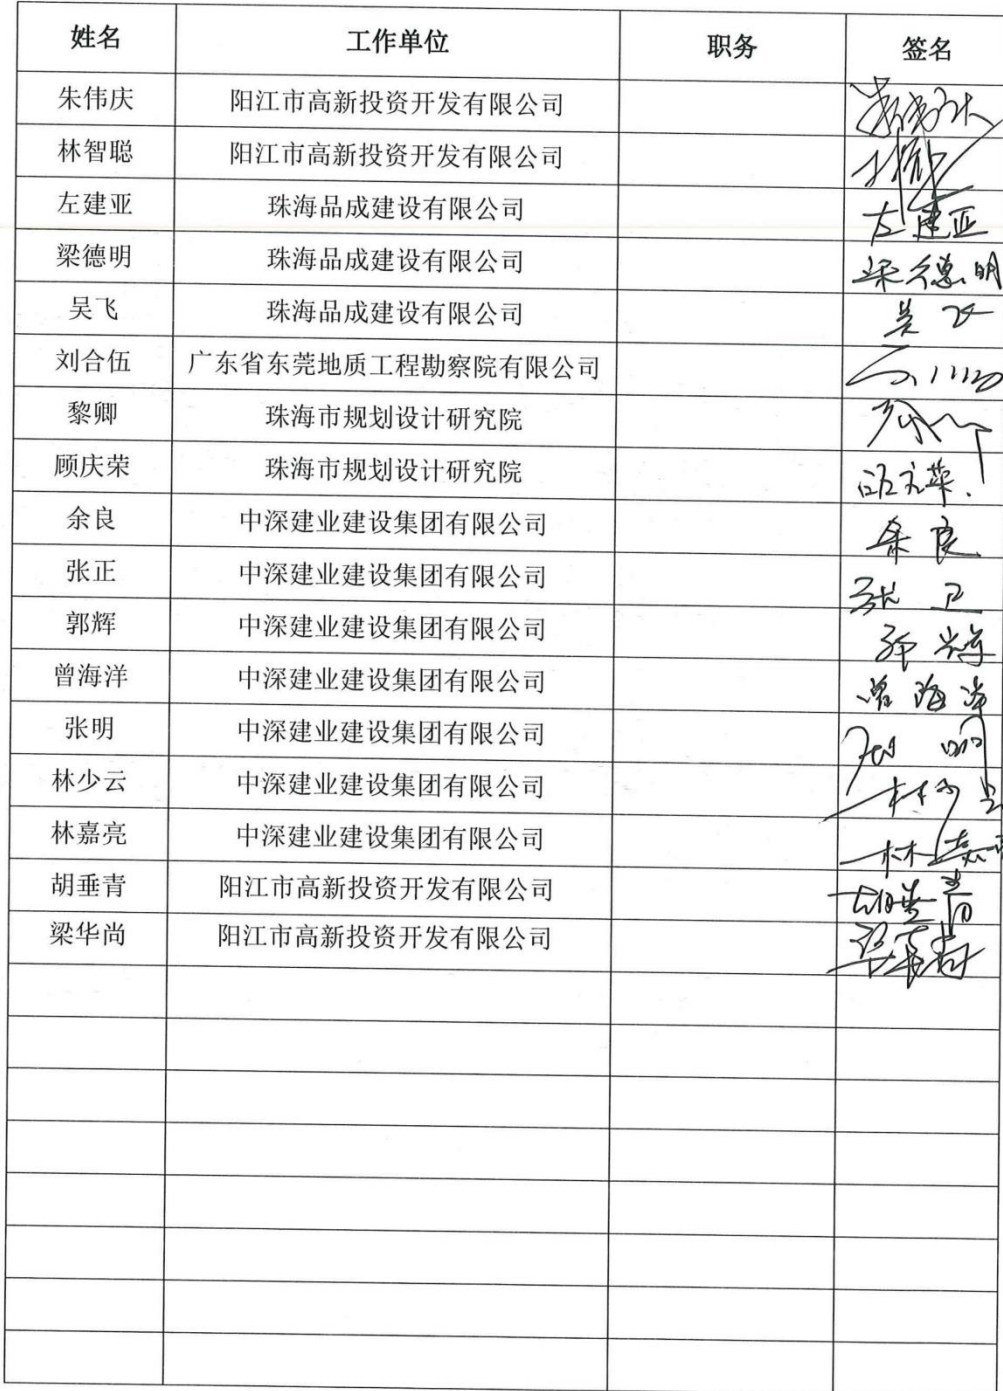 姓名 工作单位 职务 签名
朱伟庆 阳江市高新投资开发有限公司
林智聪 阳江市高新投资开发有限公司
左建亚 珠海品成建设有限公司 左建亚
梁德明 珠海品成建设有限公司 梁德明
吴飞 珠海品成建设有限公司 吴飞
刘合伍 广东省东莞地质工程勘察院有限公司
黎卿 珠海市规划设计研究院
顾庆荣 珠海市规划设计研究院
余良 中深建业建设集团有限公司 余良
张正 中深建业建设集团有限公司 张正
郭辉 中深建业建设集团有限公司 郭辉
曾海洋 中深建业建设集团有限公司 曾海洋
张明 中深建业建设集团有限公司
林少云 中深建业建设集团有限公司 林少云
林嘉亮 中深建业建设集团有限公司 林嘉亮
胡垂青 阳江市高新投资开发有限公司 胡垂青
梁华尚 阳江市高新投资开发有限公司